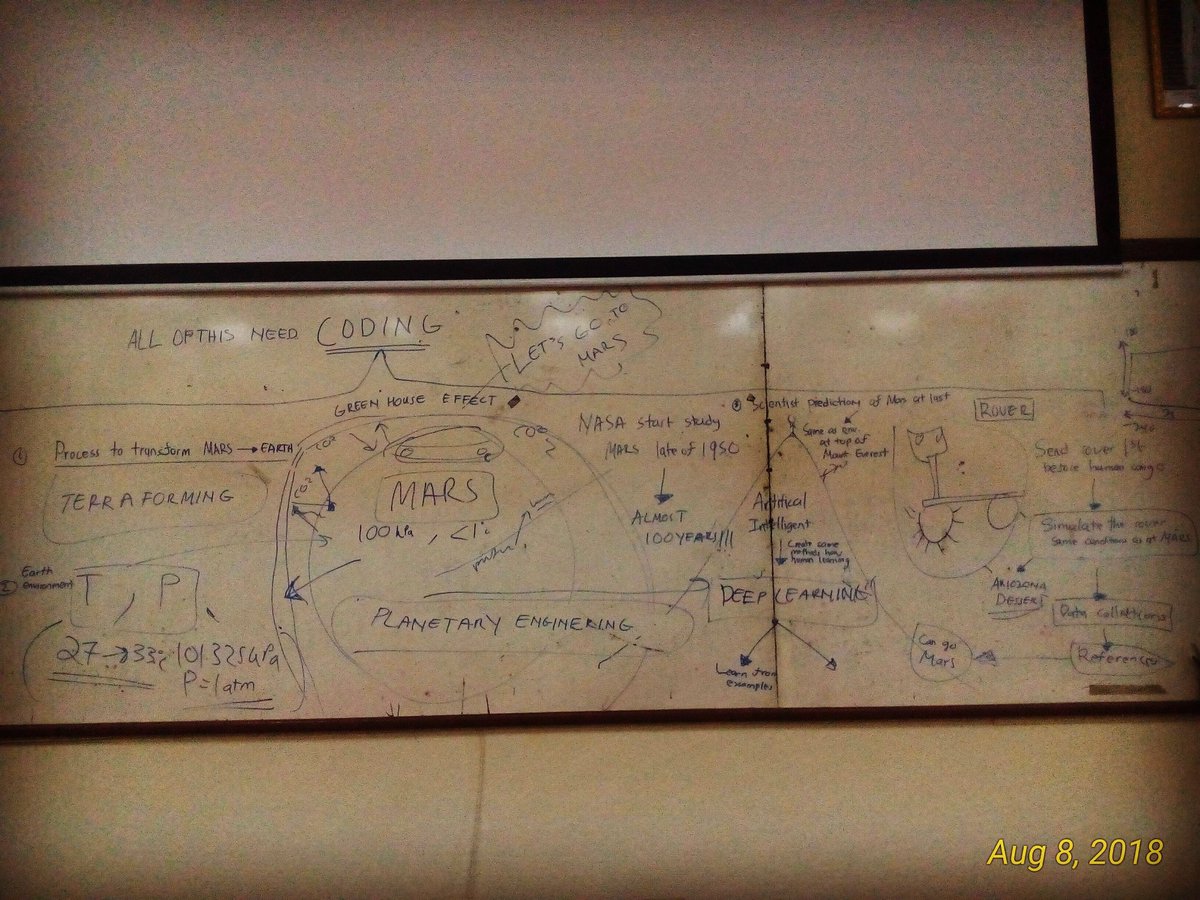 ALL OF THIS NEED CODING
LET'S GO TO
MARS
GREEN HOUSE EFFECT
① Process to transform MARS → EARTH
TERRAFORMING
② Earth
environment
T, P
27 → 33
P=1atm
CO2
CO2
CO2
MARS
100 hPa, <1
PLANETARY ENGINERING
NASA start study
MARS late of 1950
ALMOST
100YEARS!!!
③ Scientist predictions of Mars at last
Same as env.
at top of
Mount Everest
Artifical
Intelligent
Create same
methods how
human learning
DEEP LEARNING
Learn from
examples
ROVER
Send rover 1st
before human
Simulate the rover
Same conditions as at MARS
ARIZONA
DESSERT
Data collections
References
Can go
Mars
Aug 8, 2018